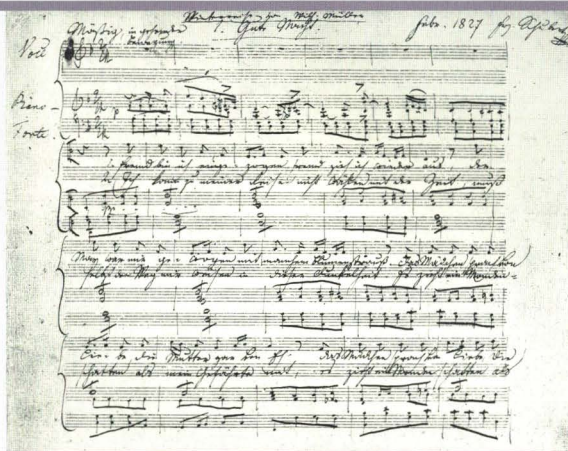 Winterreise von Wilh. Müller
Mäßig, in gehender Bewegung 1. Gute Nacht. Febr. 1827 Frz. Schubert
Piano-
Forte.
Fremd bin ich einge- zogen, fremd zieh ich wieder aus, der
Ich kann zu meiner Reisen nicht wählen mit der Zeit, muß
May war mir ge- wogen mit manchem Blumenstrauß. Das Mädchen sprach von
selbst den Weg mir weisen in dieser Dunkelheit. Es zieht ein Monden-
Lie- be, die Mutter gar von Eh', das Mädchen sprach von Liebe die
schatten als mein Gefährte mit, es zieht ein Mondenschatten als